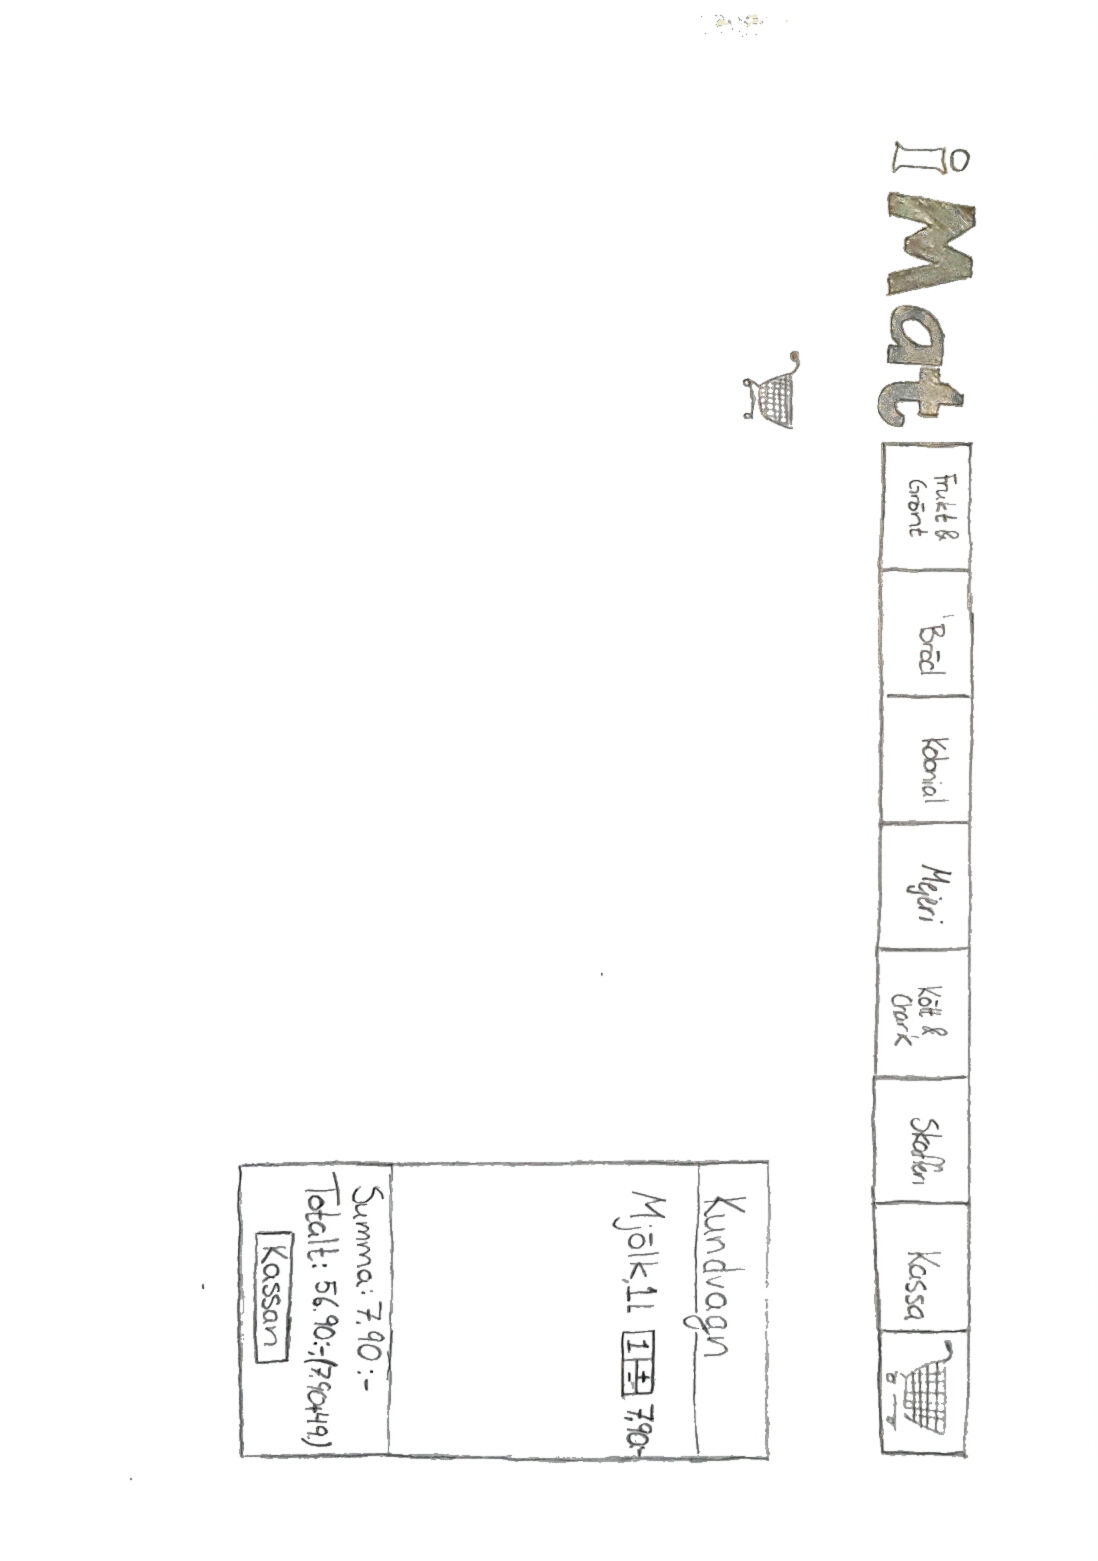 iMat
Frukt &
Grönt
Bröd
Kolonial
Mejeri
Kött &
Chark
Skafferi
Kassa
Kundvagn
Mjölk, 1L 1 + - 7,90:-
Summa: 7,90:-
Totalt: 56.90:-(7.90+49.)
Kassan